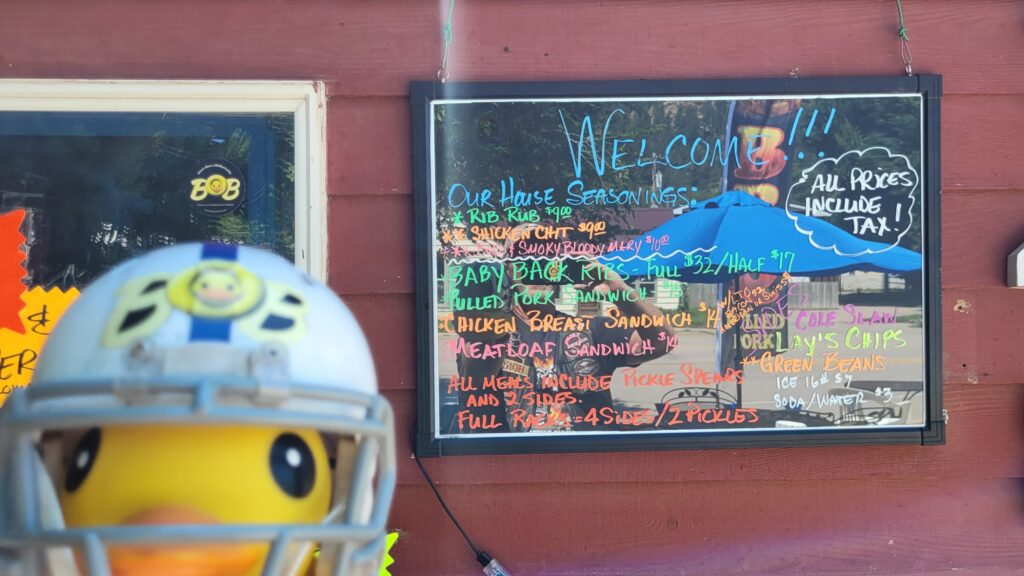 WELCOME!!!
OUR HOUSE SEASONINGS:
* RIB RUB $9.00
** SHICKEN CHIT $9.00
SMOKY BLOODY MARY $10.00
BABY BACK RIBS - FULL $32/HALF $17
PULLED PORK SANDWICH
CHICKEN BREAST SANDWICH $14
MEATLOAF SANDWICH $14
ALL MEALS INCLUDE PICKLE SPEARS
AND 2 SIDES.
FULL RACK = 4 SIDES/2 PICKLES
ALL PRICES
INCLUDE
TAX!
COLE SLAW
LAY'S CHIPS
** GREEN BEANS
ICE 16# $7
SODA/WATER $3
BOB
B B
&